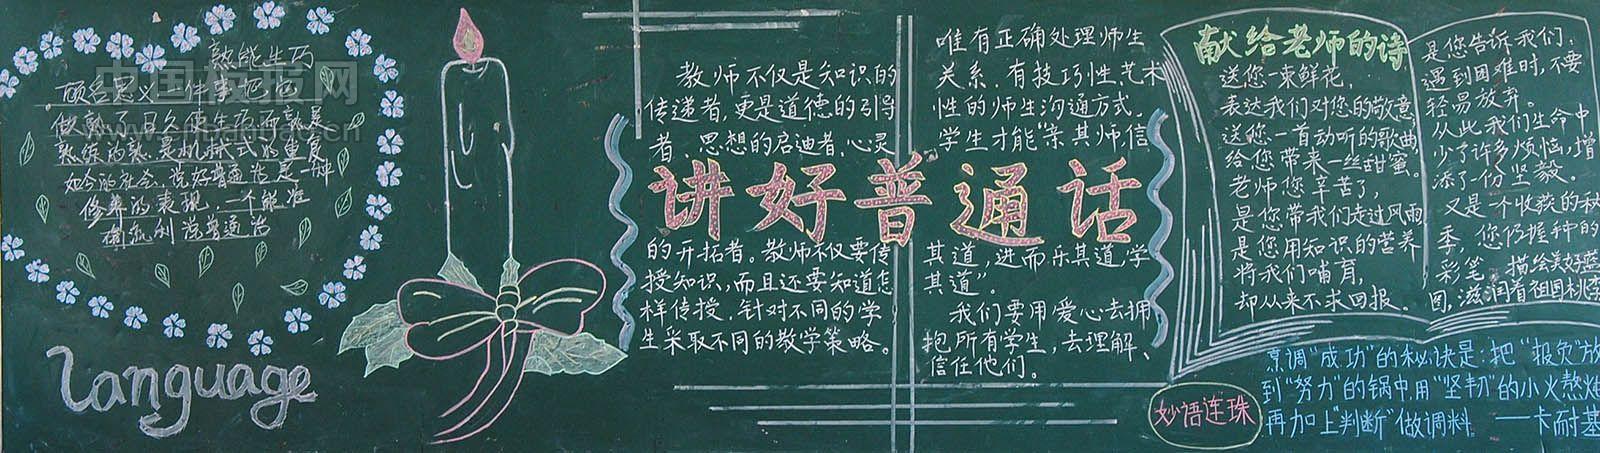 熟能生巧
顾名思义一件事把它
做熟了自会便生巧而熟是
熟练的熟是机械式的重复
如今的社会，说好普通话是一种
修养的表现，一个能准
确流利说普通话
language
教师不仅是知识的
传递者，更是道德的引导
者、思想的启迪者、心灵
讲好普通话
的开拓者。教师不仅要传
授知识，而且还要知道怎
样传授，针对不同的学
生采取不同的教学策略。
唯有正确处理师生
关系，有技巧性、艺术
性的师生沟通方式，
学生才能“亲其师，信
其道，进而乐其道，学
其道”。
我们要用爱心去拥
抱所有学生，去理解、
信任他们。
献给老师的诗
送您一束鲜花，
表达我们对您的敬意
送您一首动听的歌曲
给您带来一丝甜蜜。
老师您辛苦了，
是您带我们走过风雨
是您用知识的营养
将我们哺育，
却从来不求回报。
是您告诉我们，
遇到困难时，不要
轻易放弃。
从此，我们生命中
少了许多烦恼，增
添了一份坚毅。
又是一个收获的秋
季，您仍握手中的
彩笔，描绘美好蓝
图，滋润着祖国桃李
妙语连珠
烹调“成功”的秘诀是：把“抱负”放
到“努力”的锅中，用“坚韧”的小火熬炖
再加上“判断”做调料。——卡耐基
中国板报网